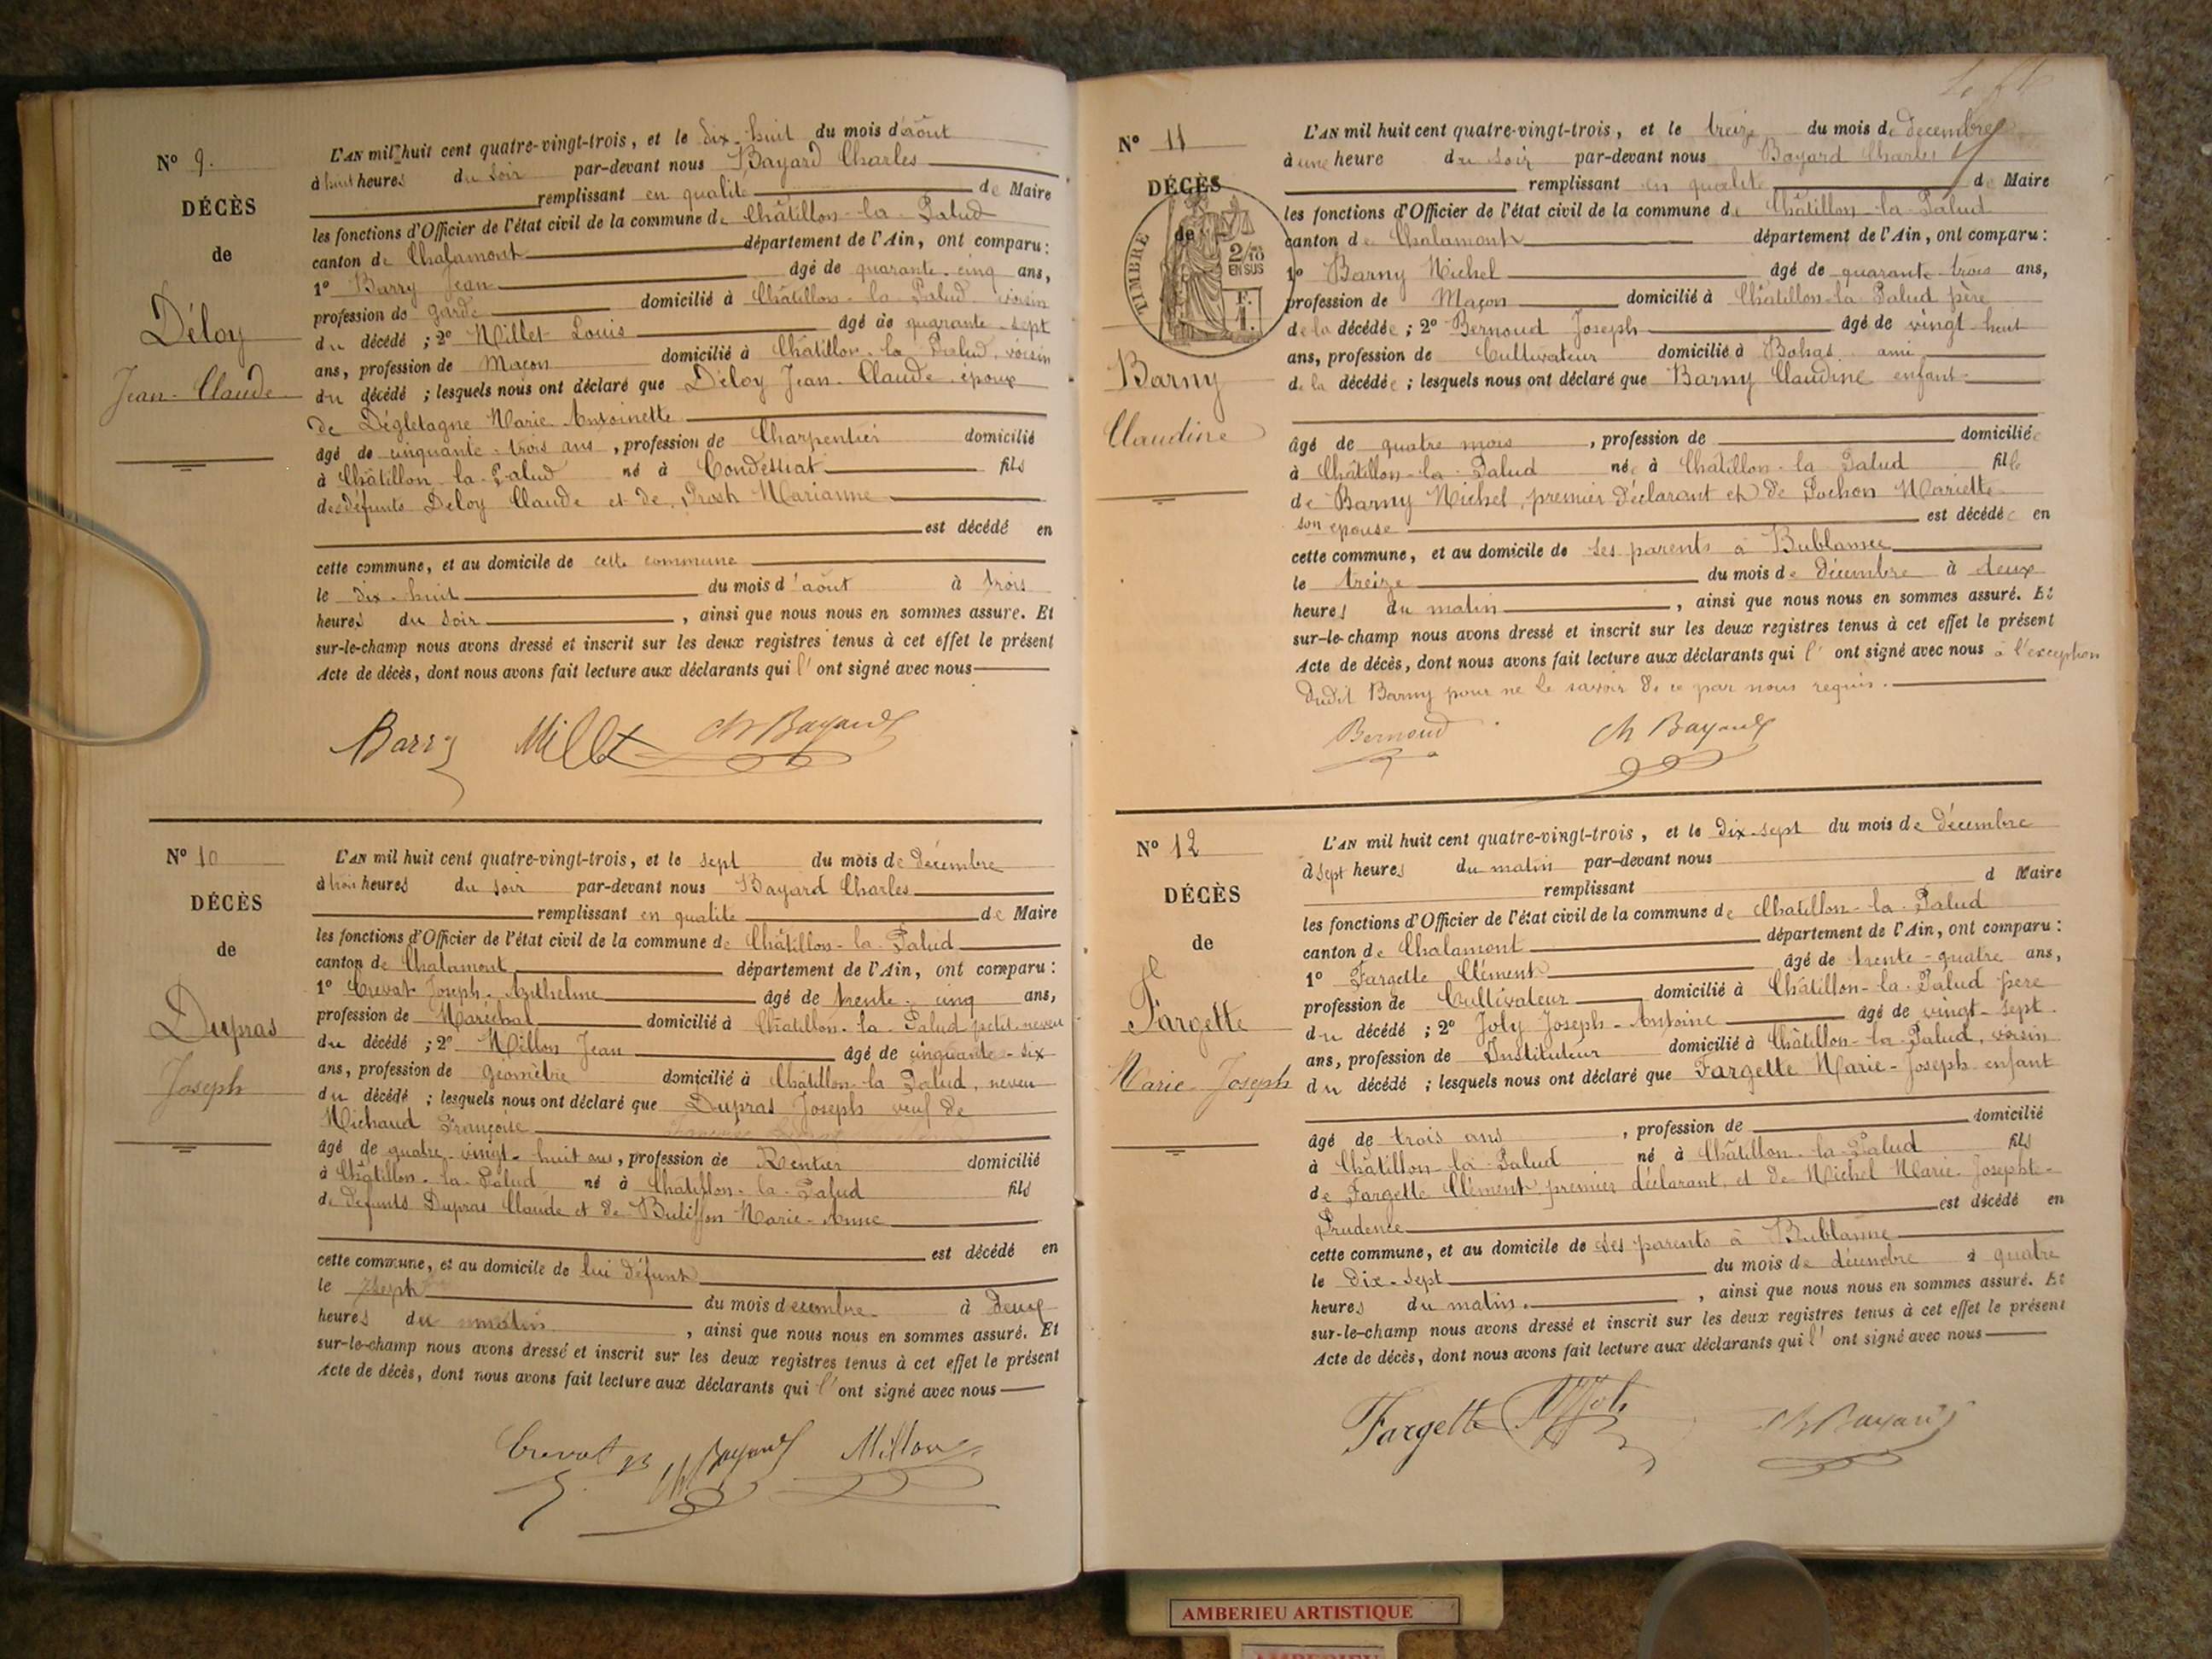 Nº 9.
DÉCÈS
de
Déloy
Jean-Claude
L'AN mil huit cent quatre-vingt-trois, et le dix-huit du mois d'août
à huit heures du soir par-devant nous Bayard Charles
remplissant en qualité de Maire
les fonctions d'Officier de l'état civil de la commune de Châtillon-la-Palud
canton de Chalamont département de l'Ain, ont comparu :
1º Barry Jean âgé de quarante-cinq ans,
profession de garde domicilié à Châtillon-la-Palud voisin
du décédé ; 2º Millet Louis âgé de quarante-sept
ans, profession de Maçon domicilié à Châtillon-la-Palud, voisin
du décédé ; lesquels nous ont déclaré que Déloy Jean-Claude époux
de Dégletagne Marie Antoinette
âgé de cinquante-trois ans, profession de Charpentier domicilié
à Châtillon-la-Palud né à Condeissiat fils
des défunts Deloy Claude et de Marianne
est décédé en
cette commune, et au domicile de cette commune
le dix-huit du mois d'août à trois
heures du soir, ainsi que nous nous en sommes assuré. Et
sur-le-champ nous avons dressé et inscrit sur les deux registres tenus à cet effet le présent
Acte de décès, dont nous avons fait lecture aux déclarants qui l'ont signé avec nous
Barry Millet Ch Bayard
Nº 10
DÉCÈS
de
Dupras
Joseph
L'AN mil huit cent quatre-vingt-trois, et le sept du mois de décembre
à trois heures du soir par-devant nous Bayard Charles
remplissant en qualité de Maire
les fonctions d'Officier de l'état civil de la commune de Châtillon-la-Palud
canton de Chalamont département de l'Ain, ont comparu :
1º Crevat Joseph-Anthelme âgé de trente-cinq ans,
profession de Maréchal domicilié à Châtillon-la-Palud petit-neveu
du décédé ; 2º Millon Jean âgé de cinquante-six
ans, profession de géomètre domicilié à Châtillon-la-Palud, neveu
du décédé ; lesquels nous ont déclaré que Dupras Joseph veuf de
Michaud Françoise
âgé de quatre-vingt-huit ans, profession de Rentier domicilié
à Châtillon-la-Palud né à Châtillon-la-Palud fils
de défunts Dupras Claude et de Buliffon Marie-Anne
est décédé en
cette commune, et au domicile de lui défunt
le sept du mois decembre à deux
heures du matin, ainsi que nous nous en sommes assuré. Et
sur-le-champ nous avons dressé et inscrit sur les deux registres tenus à cet effet le présent
Acte de décès, dont nous avons fait lecture aux déclarants qui l'ont signé avec nous
Crevat Ch Bayard Millon
Nº 11
DÉCÈS
de
TIMBRE
2/10
EN SUS
F.
1.
Barny
Claudine
L'AN mil huit cent quatre-vingt-trois, et le treize du mois de décembre
à une heure du soir par-devant nous Bayard Charles
remplissant en qualité de Maire
les fonctions d'Officier de l'état civil de la commune de Châtillon-la-Palud
canton de Chalamont département de l'Ain, ont comparu :
1º Barny Michel âgé de quarante-trois ans,
profession de Maçon domicilié à Châtillon-la-Palud père
de la décédée ; 2º Bernoud Joseph âgé de vingt-huit
ans, profession de Cultivateur domicilié à Bohas ami
de la décédée ; lesquels nous ont déclaré que Barny Claudine enfant
âgé de quatre mois, profession de domiciliée
à Châtillon-la-Palud née à Châtillon-la-Palud fille
de Barny Michel, premier déclarant et de Pochon Mariette
son épouse est décédée en
cette commune, et au domicile de ses parents à Bublanne
le treize du mois de décembre à deux
heures du matin, ainsi que nous nous en sommes assuré. Et
sur-le-champ nous avons dressé et inscrit sur les deux registres tenus à cet effet le présent
Acte de décès, dont nous avons fait lecture aux déclarants qui l'ont signé avec nous à l'exception
dudit Barny pour ne le savoir de ce par nous requis.
Bernoud Ch Bayard
Nº 12
DÉCÈS
de
Fargette
Marie-Joseph
L'AN mil huit cent quatre-vingt-trois, et le dix-sept du mois de décembre
à sept heures du matin par-devant nous
remplissant d Maire
les fonctions d'Officier de l'état civil de la commune de Châtillon-la-Palud
canton de Chalamont département de l'Ain, ont comparu :
1º Fargette Clément âgé de trente-quatre ans,
profession de Cultivateur domicilié à Châtillon-la-Palud père
du décédé ; 2º Joly Joseph-Antoine âgé de vingt-sept
ans, profession de Instituteur domicilié à Châtillon-la-Palud, voisin
du décédé ; lesquels nous ont déclaré que Fargette Marie-Joseph enfant
âgé de trois ans, profession de domicilié
à Châtillon-la-Palud né à Châtillon-la-Palud fils
de Fargette Clément, premier déclarant, et de Michel Marie-Josephte-
Prudence est décédé en
cette commune, et au domicile de ses parents à Bublanne
le dix-sept du mois de décembre à quatre
heures du matin, ainsi que nous nous en sommes assuré. Et
sur-le-champ nous avons dressé et inscrit sur les deux registres tenus à cet effet le présent
Acte de décès, dont nous avons fait lecture aux déclarants qui l'ont signé avec nous
Fargette Joly Ch Bayard
AMBERIEU ARTISTIQUE
AMBERIEU